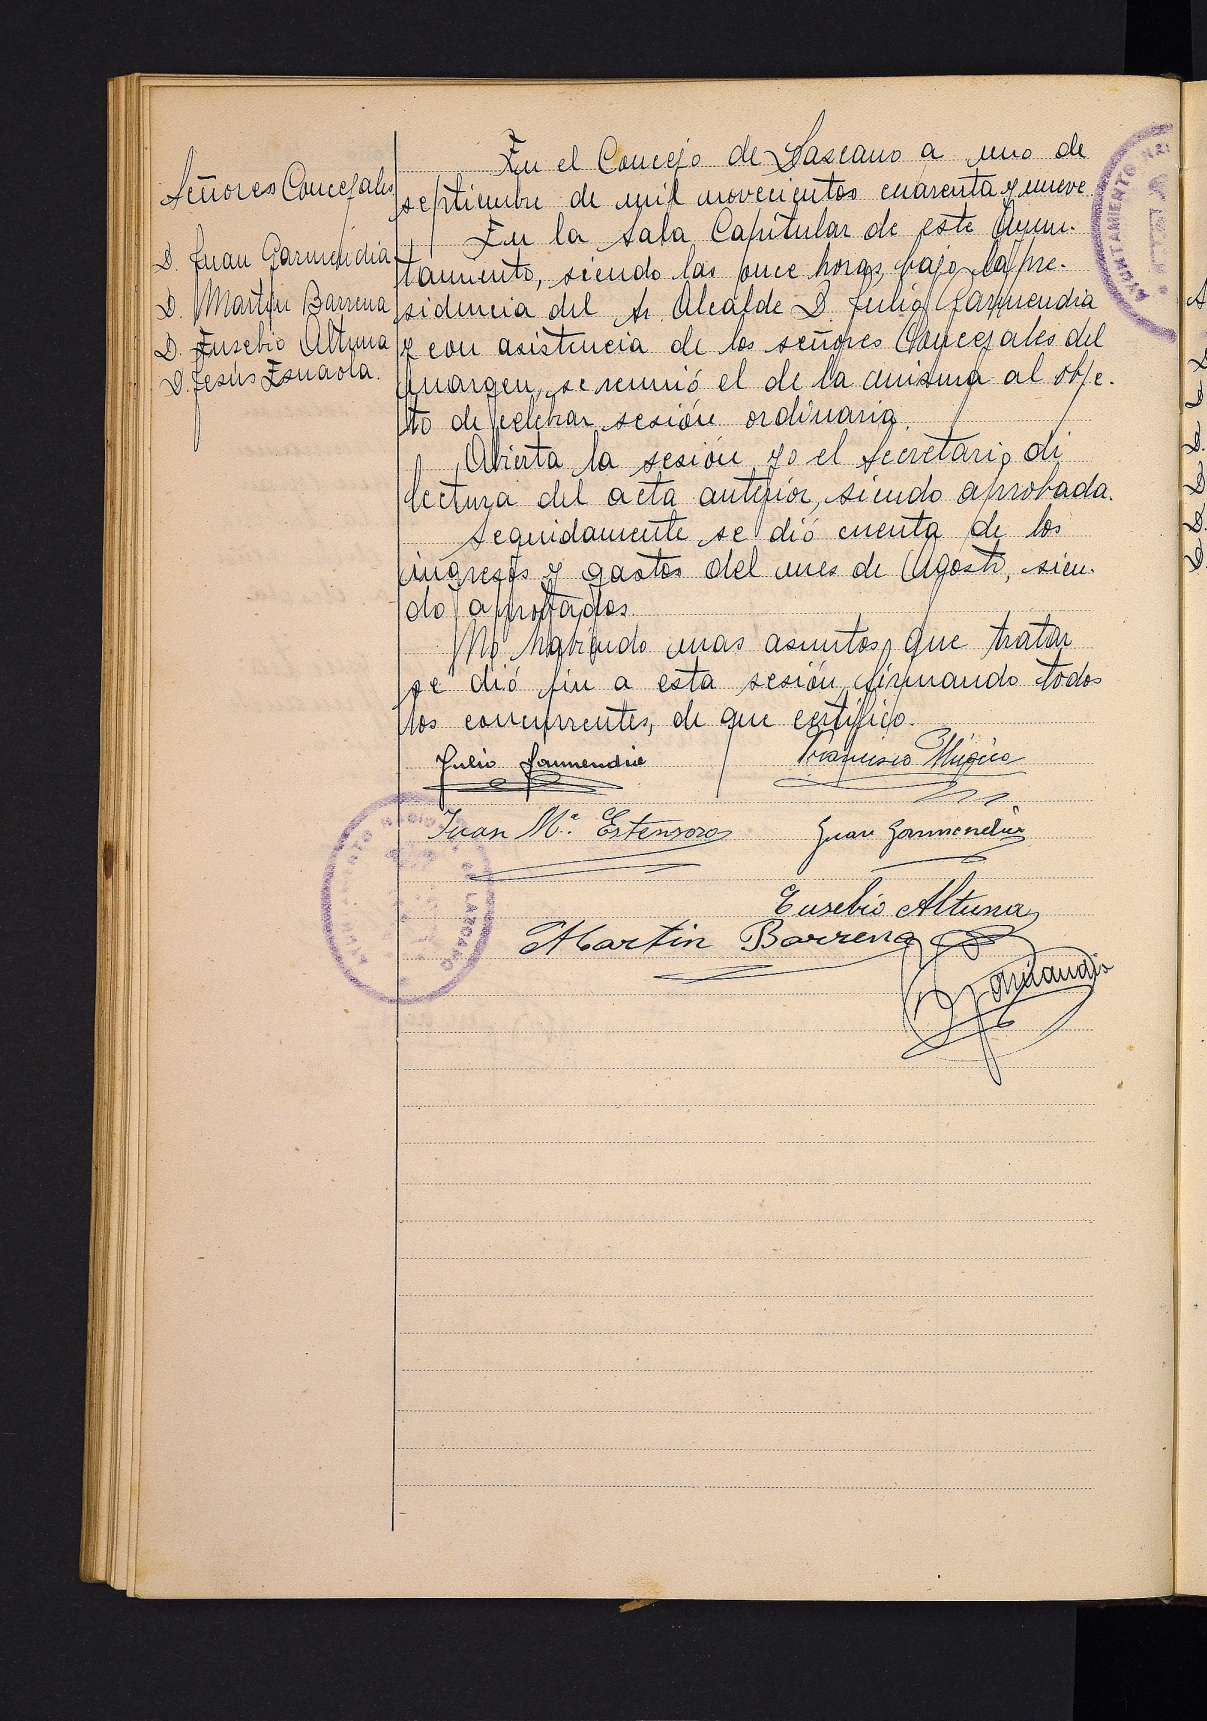 Señores Concejales
D. Juan Garmendia
D. Martín Barrena
D. Eusebio Altuna
D. Jesús Esnaola.
En el Concejo de Lazcano a uno de
septiembre de mil novecientos cuarenta y nueve.
En la Sala Capitular de este Ayun-
tamiento, siendo las once horas, bajo la pre-
sidencia del Sr. Alcalde D. Julio Garmendia
y con asistencia de los señores Concejales del
margen, se reunió el de la misma al obje-
to de celebrar sesión ordinaria.
Abierta la sesión, yo el Secretario di
lectura del acta anterior, siendo aprobada.
Seguidamente se dió cuenta de los
ingresos y gastos del mes de Agosto, sien-
do aprobados.
No habiendo mas asuntos que tratar
se dió fin a esta sesión, firmando todos
los concurrentes, de que certifico.
Julio Garmendia
Francisco Múgica
Juan Mª. Estensoro
Juan Garmendia
Eusebio Altuna
Martin Barrena
AYUNTAMIENTO NACIONAL DE LAZCANO
AYUNTAMIENTO